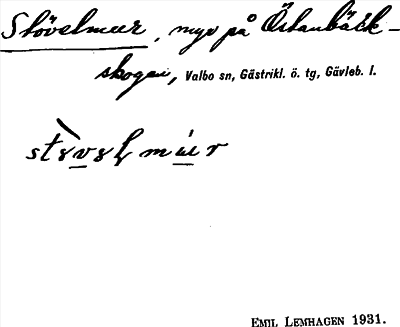 Stövelmuur, myr på Östanbäck-
skogen, Valbo sn, Gästrikl. ö. tg, Gävleb. l.
EMIL LEMHAGEN 1931.